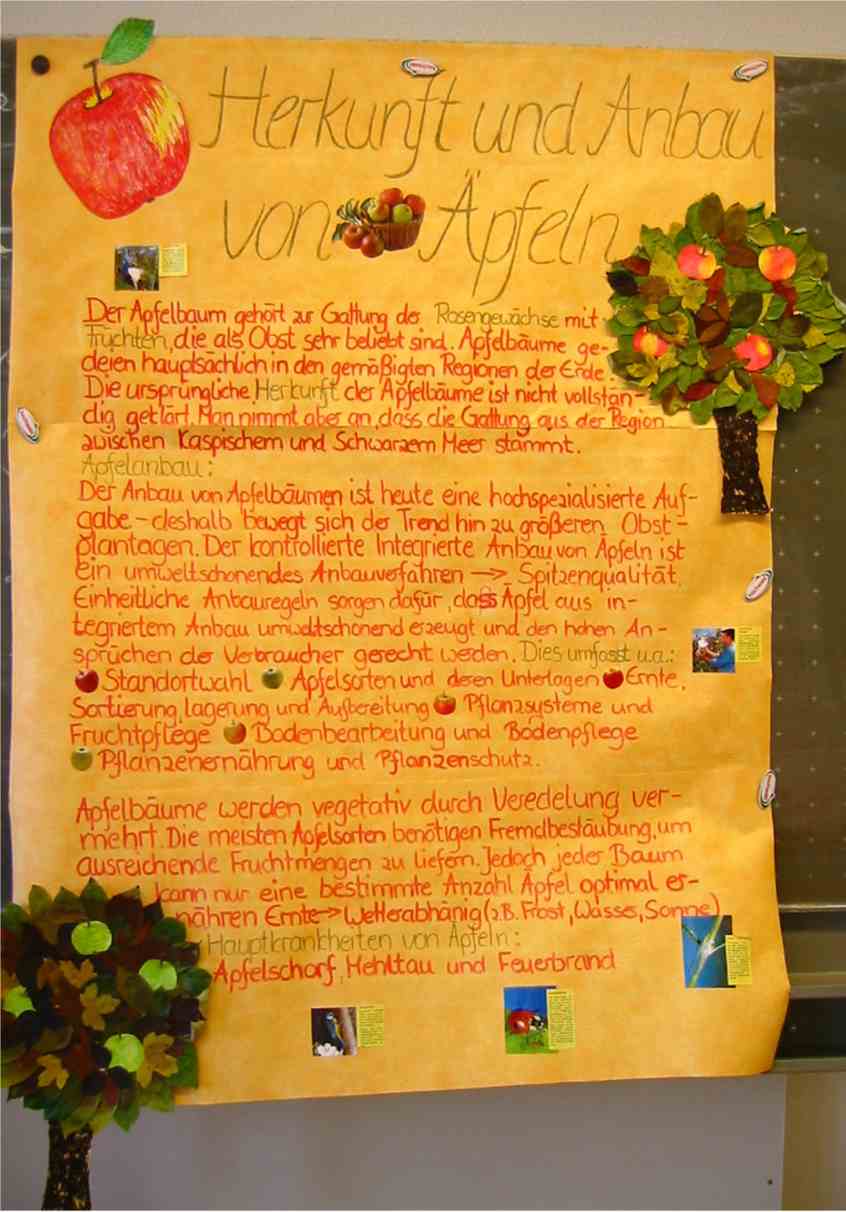 Herkunft und Anbau
von Äpfeln
Der Apfelbaum gehört zur Gattung der Rosengewächse mit
Früchten, die als Obst sehr beliebt sind. Apfelbäume ge-
deien hauptsächlich in den gemäßigten Regionen der Erde.
Die ursprüngliche Herkunft der Apfelbäume ist nicht vollstän-
dig geklärt. Man nimmt aber an, dass die Gattung aus der Region
zwischen Kaspischem und Schwarzem Meer stammt.
Apfelanbau:
Der Anbau von Apfelbäumen ist heute eine hochspezialisierte Auf-
gabe - deshalb bewegt sich der Trend hin zu größeren Obst-
plantagen. Der kontrollierte Integrierte Anbau von Äpfeln ist
ein umweltschonendes Anbauverfahren → Spitzenqualität.
Einheitliche Anbauregeln sorgen dafür, dass Äpfel aus in-
tegriertem Anbau umweltschonend erzeugt und den hohen An-
sprüchen der Verbraucher gerecht werden. Dies umfasst u.a.:
Standortwahl Apfelsorten und deren Unterlagen Ernte,
Sortierung, lagerung und Aufbereitung Pflanzsysteme und
Fruchtpflege Bodenbearbeitung und Bodenpflege
Pflanzenernährung und Pflanzenschutz.
Apfelbäume werden vegetativ durch Veredelung ver-
mehrt. Die meisten Apfelsorten benötigen Fremdbestäubung, um
ausreichende Fruchtmengen zu liefern. Jedoch jeder Baum
kann nur eine bestimmte Anzahl Äpfel optimal er-
nähren Ernte→Wetterabhänig (z.B. Frost, Wasser, Sonne)
Hauptkrankheiten von Äpfeln:
Apfelschorf, Mehltau und Feuerbrand